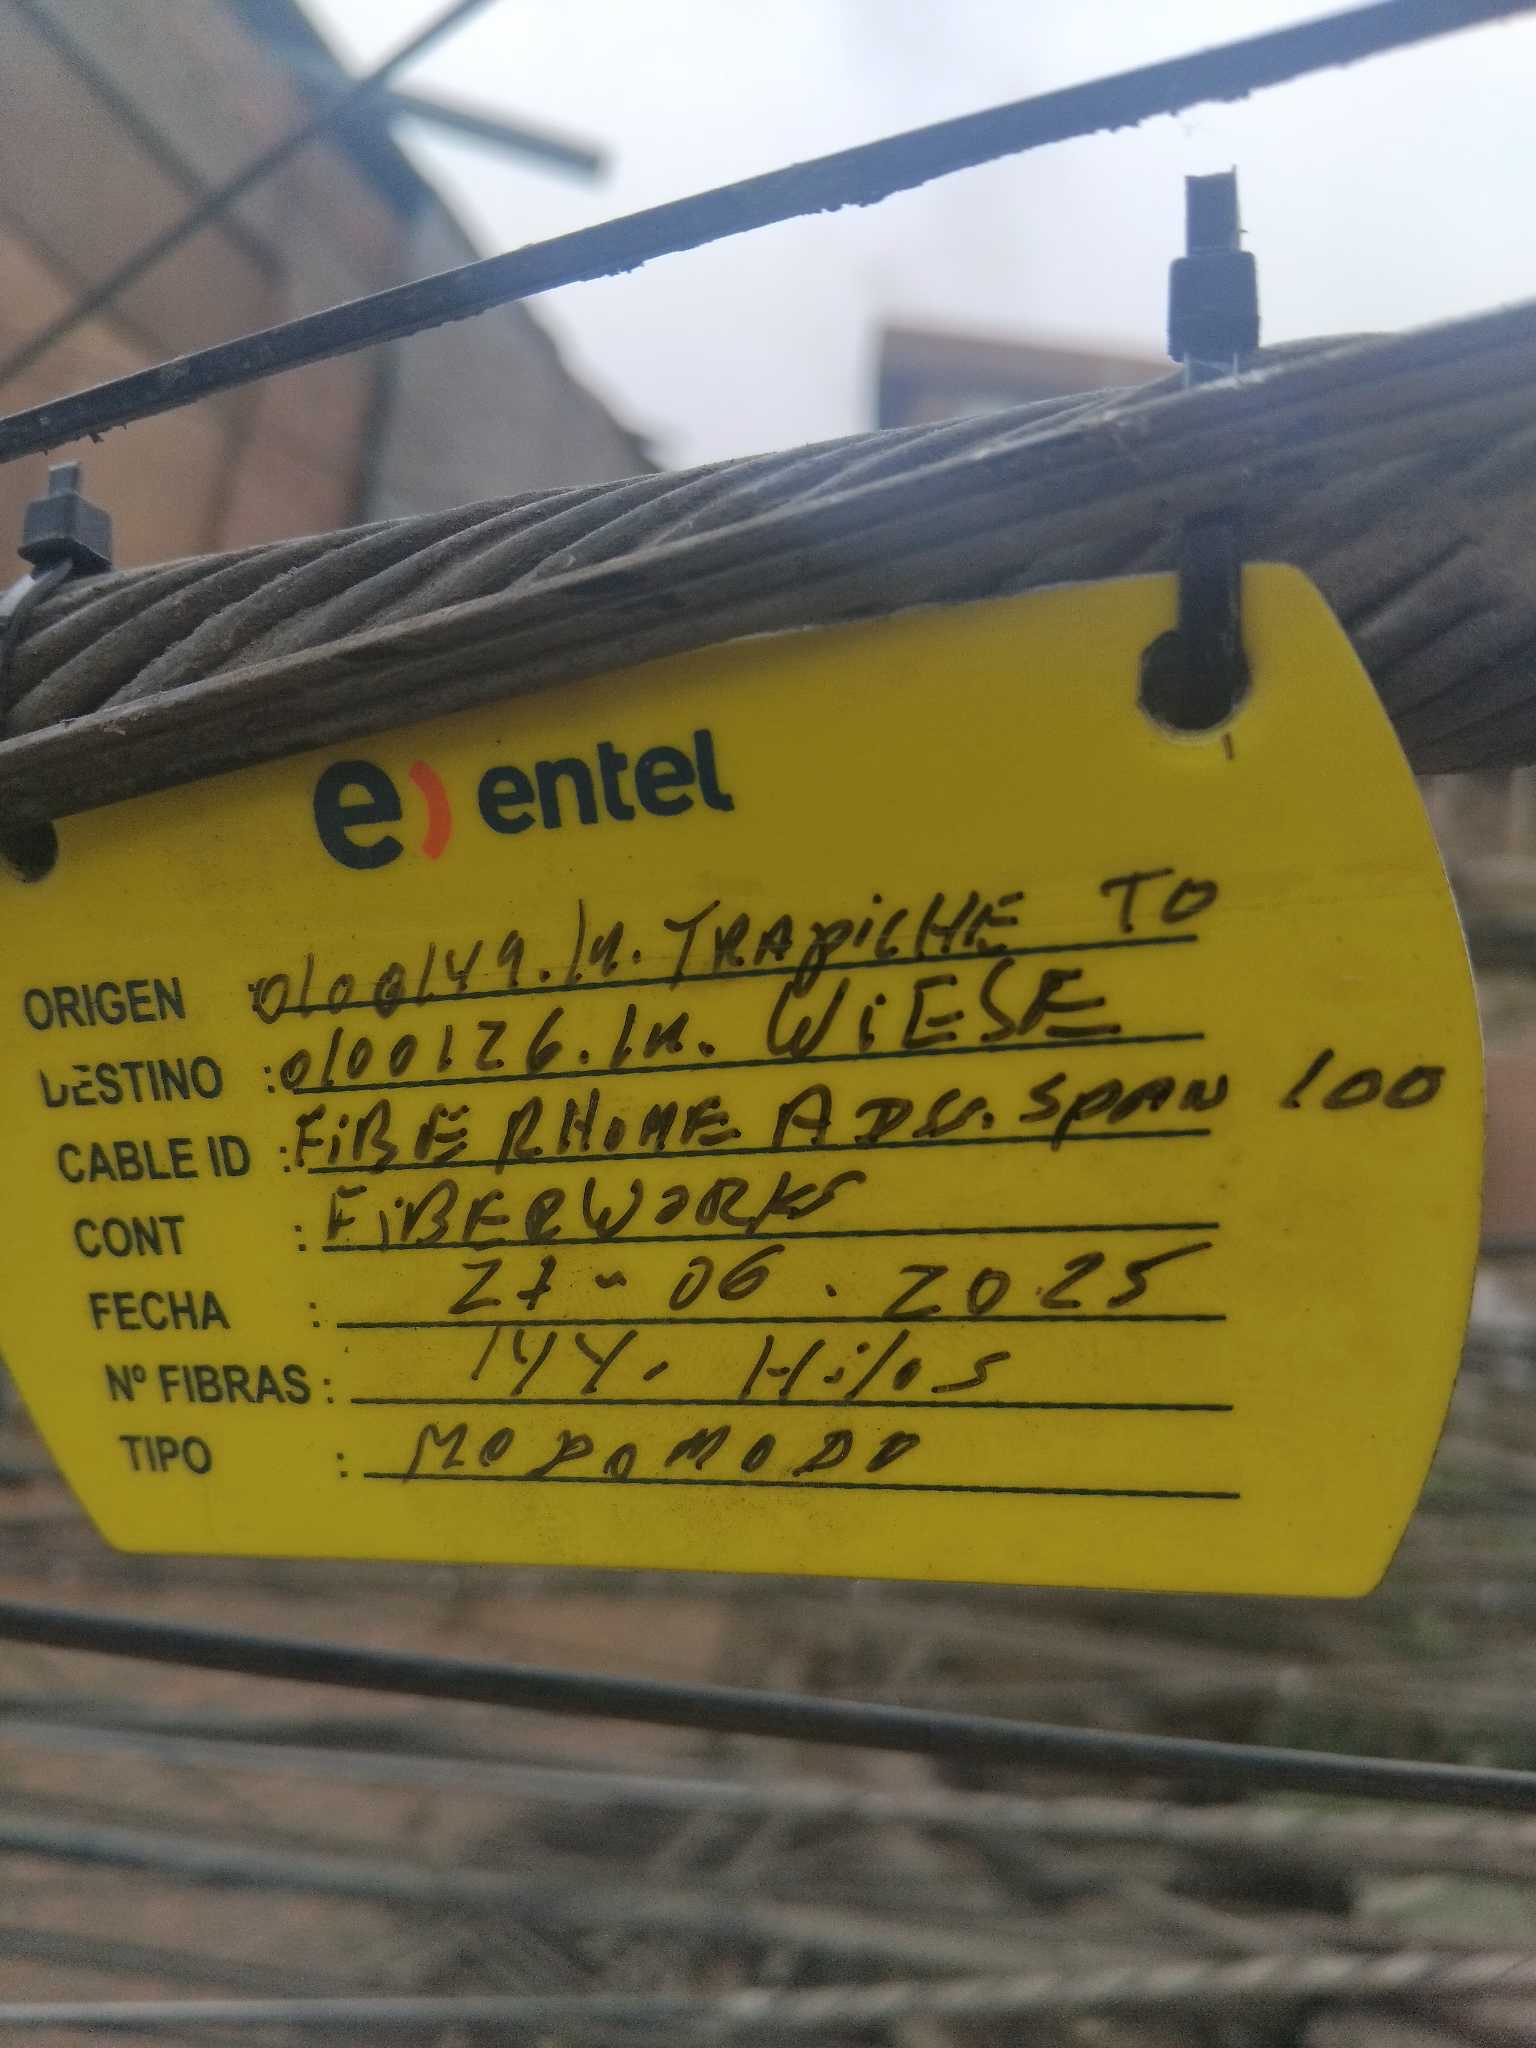 e) entel
ORIGEN : 0100149.LM.TRAPICHE TO
DESTINO : 0100126.LM. WiESE
CABLE ID : FiBERHOME ADSS. SPAN 100
CONT : FiBERWORKS
FECHA : 27-06.2025
Nº FIBRAS : 144. Hilos
TIPO : MODOMODO